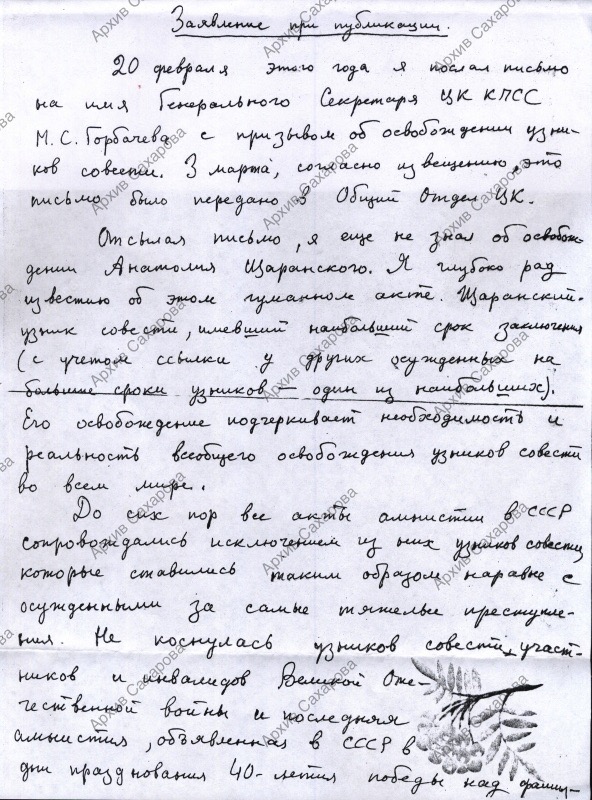 Заявление при публикации.
20 февраля этого года я послал письмо
на имя Генерального Секретаря ЦК КПСС
М.С. Горбачева с призывом об освобождении узни-
ков совести. 3 марта, согласно извещению, это
письмо было передано в Общий Отдел ЦК.
Отсылая письмо, я еще не знал об освобож-
дении Анатолия Щаранского. Я глубоко рад
известию об этом гуманном акте. Щаранский -
узник совести, имевший наибольший срок заключения
(с учетом ссылки у других осужденных на
большие сроки узников — один из наибольших).
Его освобождение подчеркивает необходимость и
реальность всеобщего освобождения узников совести
во всем мире.
До сих пор все акты амнистии в СССР
сопровождались исключением из них узников совести
которые ставились таким образом наравне с
осужденными за самые тяжелые преступле-
ния. Не коснулась узников совести, участ-
ников и инвалидов Великой Оте-
чественной войны и последняя
амнистия, объявленная в СССР в
дни празднования 40-летия победы над фашиз-
Архив Сахарова